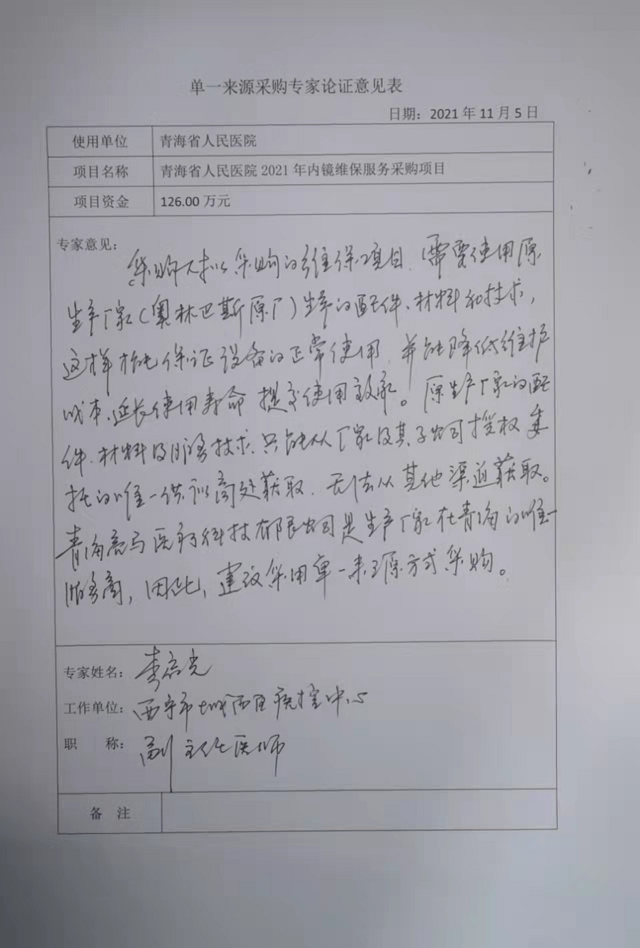 单一来源采购专家论证意见表
日期：2021年11月5日
使用单位 青海省人民医院
项目名称 青海省人民医院2021年内镜维保服务采购项目
项目资金 126.00万元
专家意见：
采购人拟采购的维保项目，需要使用原
生产厂家（奥林巴斯原厂）生产的配件、材料和技术，
这样才能保证设备的正常使用，并能降低维护
成本、延长使用寿命，提高使用效率。原生产厂家的配
件、材料及服务技术，只能从厂家及其子公司授权委
托的唯一供应商处获取，无法从其他渠道获取。
青海 医疗科技有限公司是生产厂家在青海的唯一
服务商，因此，建议采用单一来源方式采购。
专家姓名：李 光
工作单位：西宁市城西区疾控中心
职 称：副主任医师
备 注